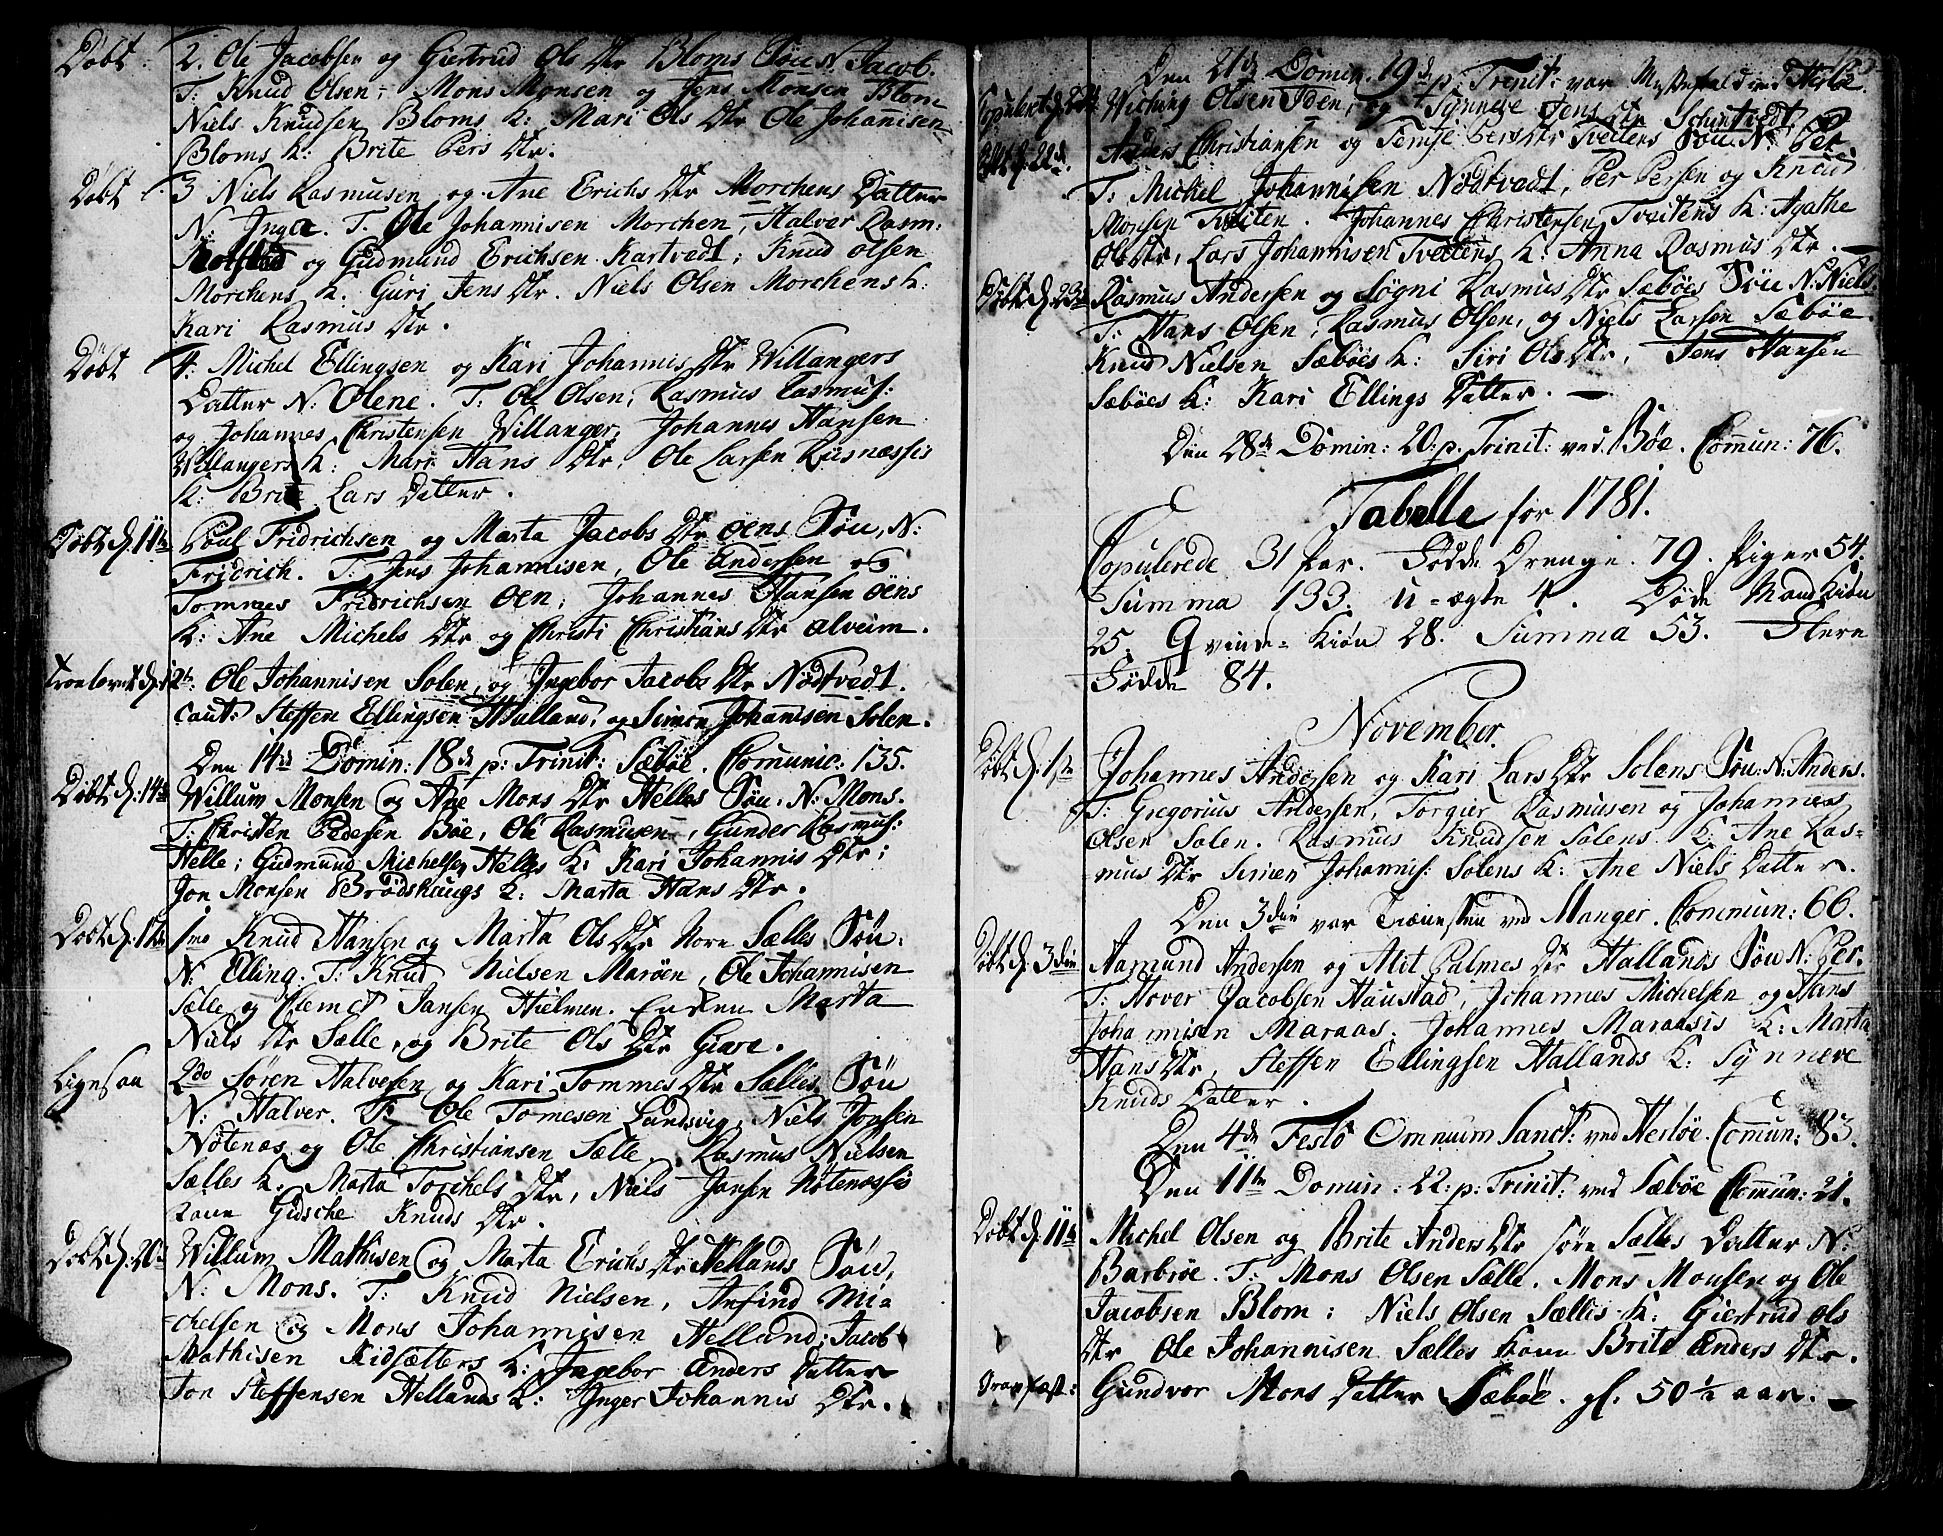 Døbt 2. Ole Jacobsen og Giertrud Ols Dtr Bloms Søn N. Jacob.
T: Knud Olsen, Mons Monsen og Jens Monsen Blom
Niels Knudsen Bloms K: Mari Ols Dtr Ole Johanisen
Bloms K: Brite Pers Dtr.
Døbt 3 Niels Rasmusen og Ane Erichs Dtr Morchens Datter
N: Inga. T. Ole Johannisen Morchen, Halver Rasm:
og Gudmund Erichsen Kartvedt; Knud Olsen
Morchens K. Guri Jens Dtr. Niels Olsen Morchens K:
Kari Rasmus Dtr.
Døbt 4. Michel Ellingsen og Kari Johannis Dtr Willangers
Datter N: Olene. T: Ole Olsen, Rasmus Rasmus:
og Johannes Christensen Willanger, Johannes Hansen
Willangers K: Mari Hans Dtr, Ole Larsen Risnæssis
K: Brite Lars Datter.
Døbt d. 11te Poul Fridrichsen og Marta Jacobs Dtr Øens Søn, N:
Fridrich. T: Jens Johannisen, Ole Andersen og
Tommes Fridrichsen Øen; Johannes Hansen Øens
K: Ane Michels Dtr og Christi Christians Dtr Alveim.
Trolovet d. 12te Ole Johannisen Solen, og Ingebor Jacobs Dtr Nødtvedt.
Caut: Steffen Ellingsen Hualand, og Simen Johannisen Solen.
Den 14de Domin: 18de p: Trinit: Sæbøe. Comunic: 135.
Døbt d. 14de Willum Monsen og Ane Mons Dtr Helles Søn. N: Mons.
T: Christen Pedersen Bøe, Ole Rasmusen, Gunder Rasmus:
Helle; Gudmund Michelsen Helles K: Kari Johannis Dtr;
Jon Monsen Brødskiugs K: Marta Hans Dtr.
Døbt d. 1mo Knud Hansen og Marta Ols Dtr Nore Sælles Søn.
N: Elling. T: Knud Nielsen Marøen, Ole Johannisen
Sælle og Clemet Jansen Hielmen. Enken Marta
Niels Dtr Sælle, og Brite Ols Dtr Giere.
Ligesaa 2do Søren Halvorsen og Kari Tommes Dtr Sælles Søn
N: Halver. T: Ole Tomesen Landsvig, Niels Jansen
Nøtenæs og Ole Christiansen Sælle. Rasmus Nielsen
Sælles K. Marta Torchels Dtr, Niels Jansen Nøtenæssis
kone Gidsche Knuds Dtr.
Døbt d. 20de Willum Mathisen og Marta Erichs Dtr Hellands Søn,
N: Mons. T: Knud Nielsen, Anfind Mi-
chelsen og Mons Johannisen Helland; Jacob
Mathisen Kidsætters K: Ingebor Anders Datter
Jon Steffensen Hellands K: Inger Johannis Dtr.
Den 21de Domin. 19de p: Trinit: var
Copuleret Wiching Olsen Iden, og Synneve Jens Dtr
Døbt d. 22de. Anders Christiansen og Pers Dtr Tveitens Søn N: Per.
T: Michel Johannisen Nødtvedt, Per Persen og Knud
Monsen Tveiten. Johannes Christensen Tveitens K: Agathe
Ols Dtr, Lars Johannisen Tveitens K: Anna Rasmus Dtr.
Døbt d. 23de Rasmus Andersen og Søgni Rasmus Dtr Sæbøes Søn N: Niels.
T: Hans Olsen, Rasmus Olsen, og Niels Larsen Sæbøe.
Knud Nielsen Sæbøes K: Siri Ols Dtr, Jens Hansen
Sæbøes K: Kari Ellings Datter.
Den 28de Domin: 20: p: Trinit: ved Bøe. Comun: 76.
Tabelle for 1781.
Copulerede 31 Par. Fødde Drenge. 79. Piger 54.
Summa 133. u-ægte 4. Døde Mand kiøn
25. Qvinde-kiøn 28. Summa 53. Flere
Fødde 84.
November.
Døbt d. 1ste Johannes Andersen og Kari Lars Dtr Solens Søn: N: Anders.
T: Gregorius Andersen, Torgier Rasmusen og Johannes
Olsen Solen. Rasmus Knudsen Solens K: Ane Ras-
mus Dtr Simen Johannis: Solens K: Ane Niels Datter.
Den 3die var Tienesten ved Manger. Commun: 66.
Døbt d. 3die Aamund Andersen og Alit Palmes Dtr Hallands Søn N: Per.
T: Hover Jacobsen Haustad, Johannes Michelsen og Hans
Johannisen Maraas. Johannes Maraasis K: Marta
Hans Dtr, Steffen Ellingsen Hallands K: Synneve
Knuds Datter.
Den 4de Festo Omnium Sanct: ved Herløe. Comun: 83.
Den 11te Domin: 22: p: Trinit: ved Sæbøe Comun: 21.
Døbt d. 11te Michel Olsen og Brite Anders Dtr søre Sælles Datter N:
Barbroe. T: Mons Olsen Sælle. Mons Monsen og Ole
Jacobsen Blom; Niels Olsen Sælles K: Giertrud Ols
Dtr Ole Johannisen Sælles kone Brite Anders Dtr.
Jordfæst: Gundvor Mons Datter Sæbøe. gl. 50 1/2 aar.